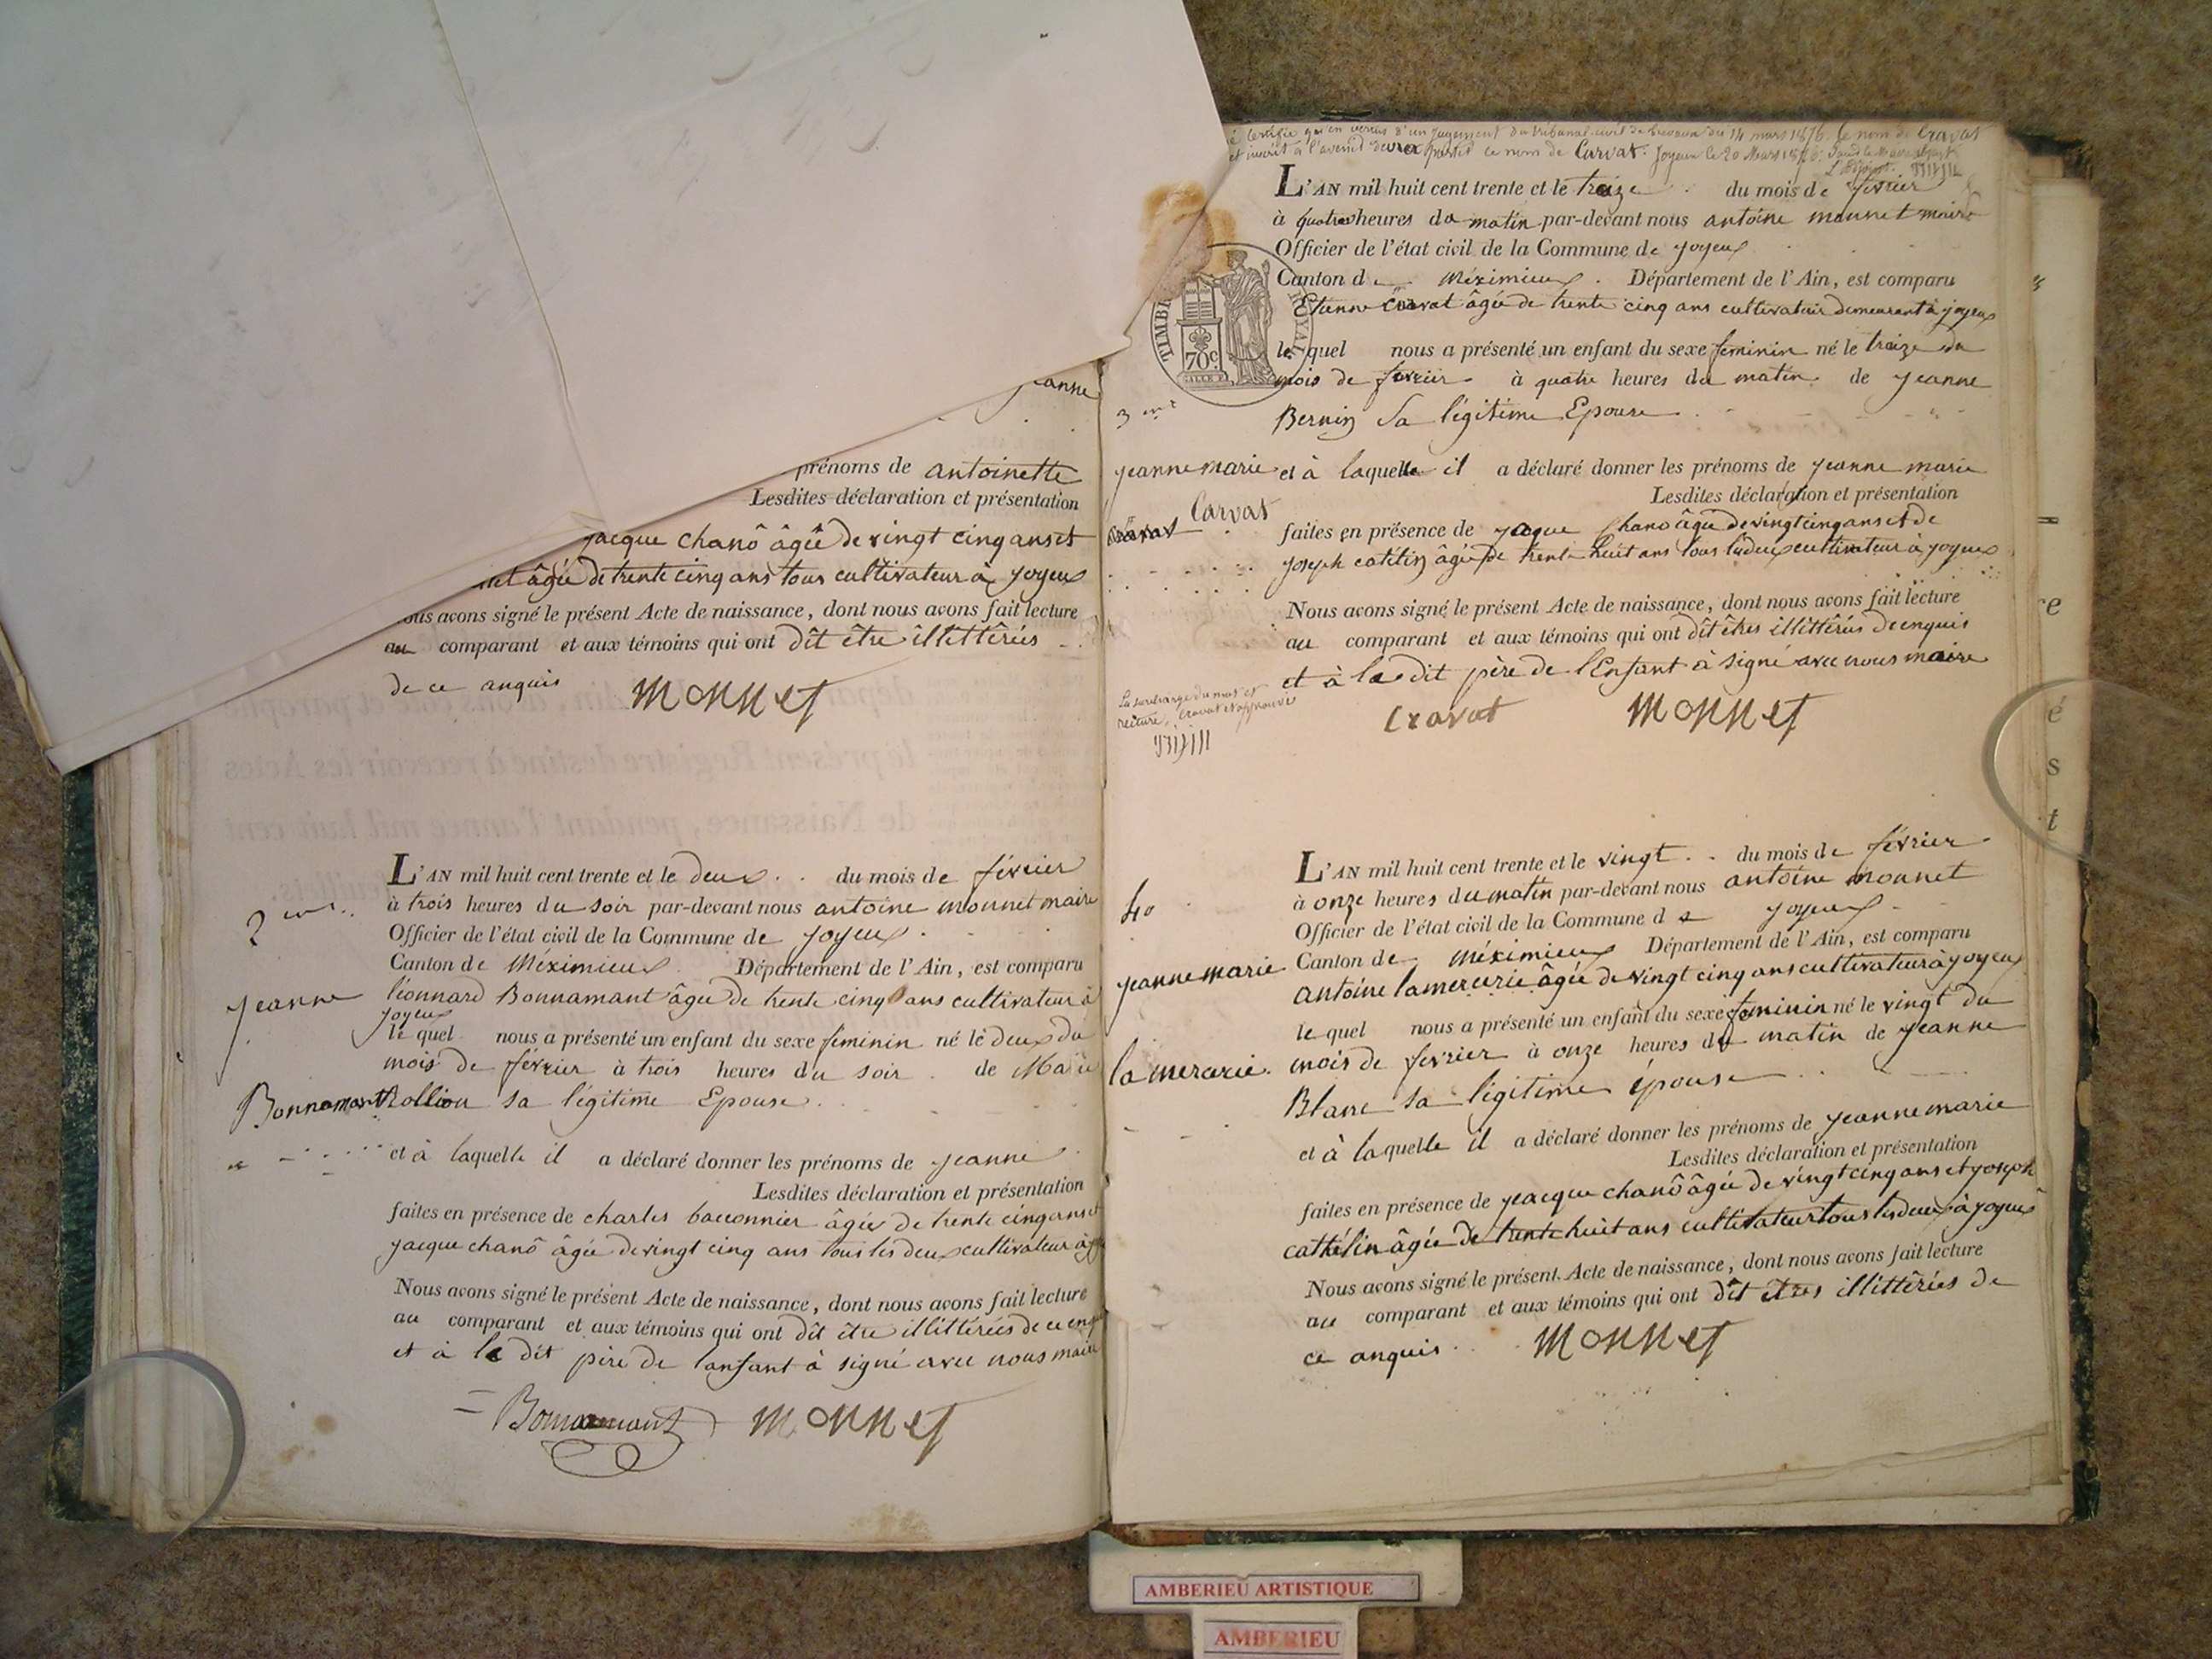 Jeanne
prénoms de antoinette
Lesdites déclaration et présentation
jacque chanô âgée de vingt cinq ans et
âgée de trente cinq ans tous cultivateur à joyeux
ous avons signé le présent Acte de naissance, dont nous avons fait lecture
au comparant et aux témoins qui ont dît être illittêrées
de ce anquis
monnet
2me
L'AN mil huit cent trente et le deux du mois de février
à trois heures du soir par-devant nous antoine monnet maire
Officier de l'état civil de la Commune de joyeux
Canton de Méximieux Département de l'Ain, est comparu
jeanne
léonnard Bonnamant âgée de trente cinq ans cultivateur à
joyeux
le quel nous a présenté un enfant du sexe féminin né le deux du
mois de février à trois heures du soir de Marie
Bonnamant
Rollion sa légitime Epouse
et à laquelle il a déclaré donner les prénoms de jeanne
Lesdites déclaration et présentation
faites en présence de charles baconnier âgée de trente cinq ans et
jacque chanô âgée de vingt cinq ans tous les deux cultivateur à
Nous avons signé le présent Acte de naissance, dont nous avons fait lecture
au comparant et aux témoins qui ont dît être illittérées de ce
et à le dit père de lanfant à signé avec nous maire
Bonnamant monnet
certifie qu'en vertu d'un jugement du tribunal civil de trevoux du 14 mars 1876. le nom de Cravat
et inscrit à l'avenir devra porter le nom de Carvat. Joyeux le 20 Mars 1876.
L'Adjoint
TIMBRE ROYAL
70c
L'AN mil huit cent trente et le treize du mois de février
à quatre heures du matin par-devant nous antoine monnet maire
Officier de l'état civil de la Commune de joyeux
Canton de Méximieux Département de l'Ain, est comparu
Etienne Cravat âgée de trente cinq ans cultivateur demeurant à joyeux
le quel nous a présenté un enfant du sexe feminin né le treize du
mois de février à quatre heures du matin de jeanne
3me
Bernin Sa légitime Epouse
jeanne marie
et à laquelle il a déclaré donner les prénoms de jeanne marie
Lesdites déclaration et présentation
Carvat
Cravat
faites en présence de jaque Chano âgée de vingt cinq ans et de
joseph catélin âgée de trente huit ans tous lesdeux cultivateur à joyeux
Nous avons signé le présent Acte de naissance, dont nous avons fait lecture
au comparant et aux témoins qui ont dît êtres illittêrées de enquis
et à le dit père de l'Enfant à signé avec nous maire
La surcharge du mot et
rature, Cravat et approuvé
Cravat monnet
4o
L'AN mil huit cent trente et le vingt du mois de février
à onze heures du matin par-devant nous antoine monnet
Officier de l'état civil de la Commune de joyeux
Canton de méximieux Département de l'Ain, est comparu
jeanne marie
antoine lamercrie âgée de vingt cinq ans cultivateur à joyeux
le quel nous a présenté un enfant du sexe feminin né le vingt du
mois de fevrier à onze heures du matin de jeanne
lamercrie.
Blanc sa légitime épouse
et à laquelle il a déclaré donner les prénoms de jeanne marie
Lesdites déclaration et présentation
faites en présence de jeacque chanô âgée de vingt cinq ans et joseph
cattélin âgée de trente huit ans cultivateur tous les deux à joyeux
Nous avons signé le présent Acte de naissance, dont nous avons fait lecture
au comparant et aux témoins qui ont dît êtres illittêrées de
ce anquis monnet
re
é
s
t
AMBERIEU ARTISTIQUE
AMBERIEU